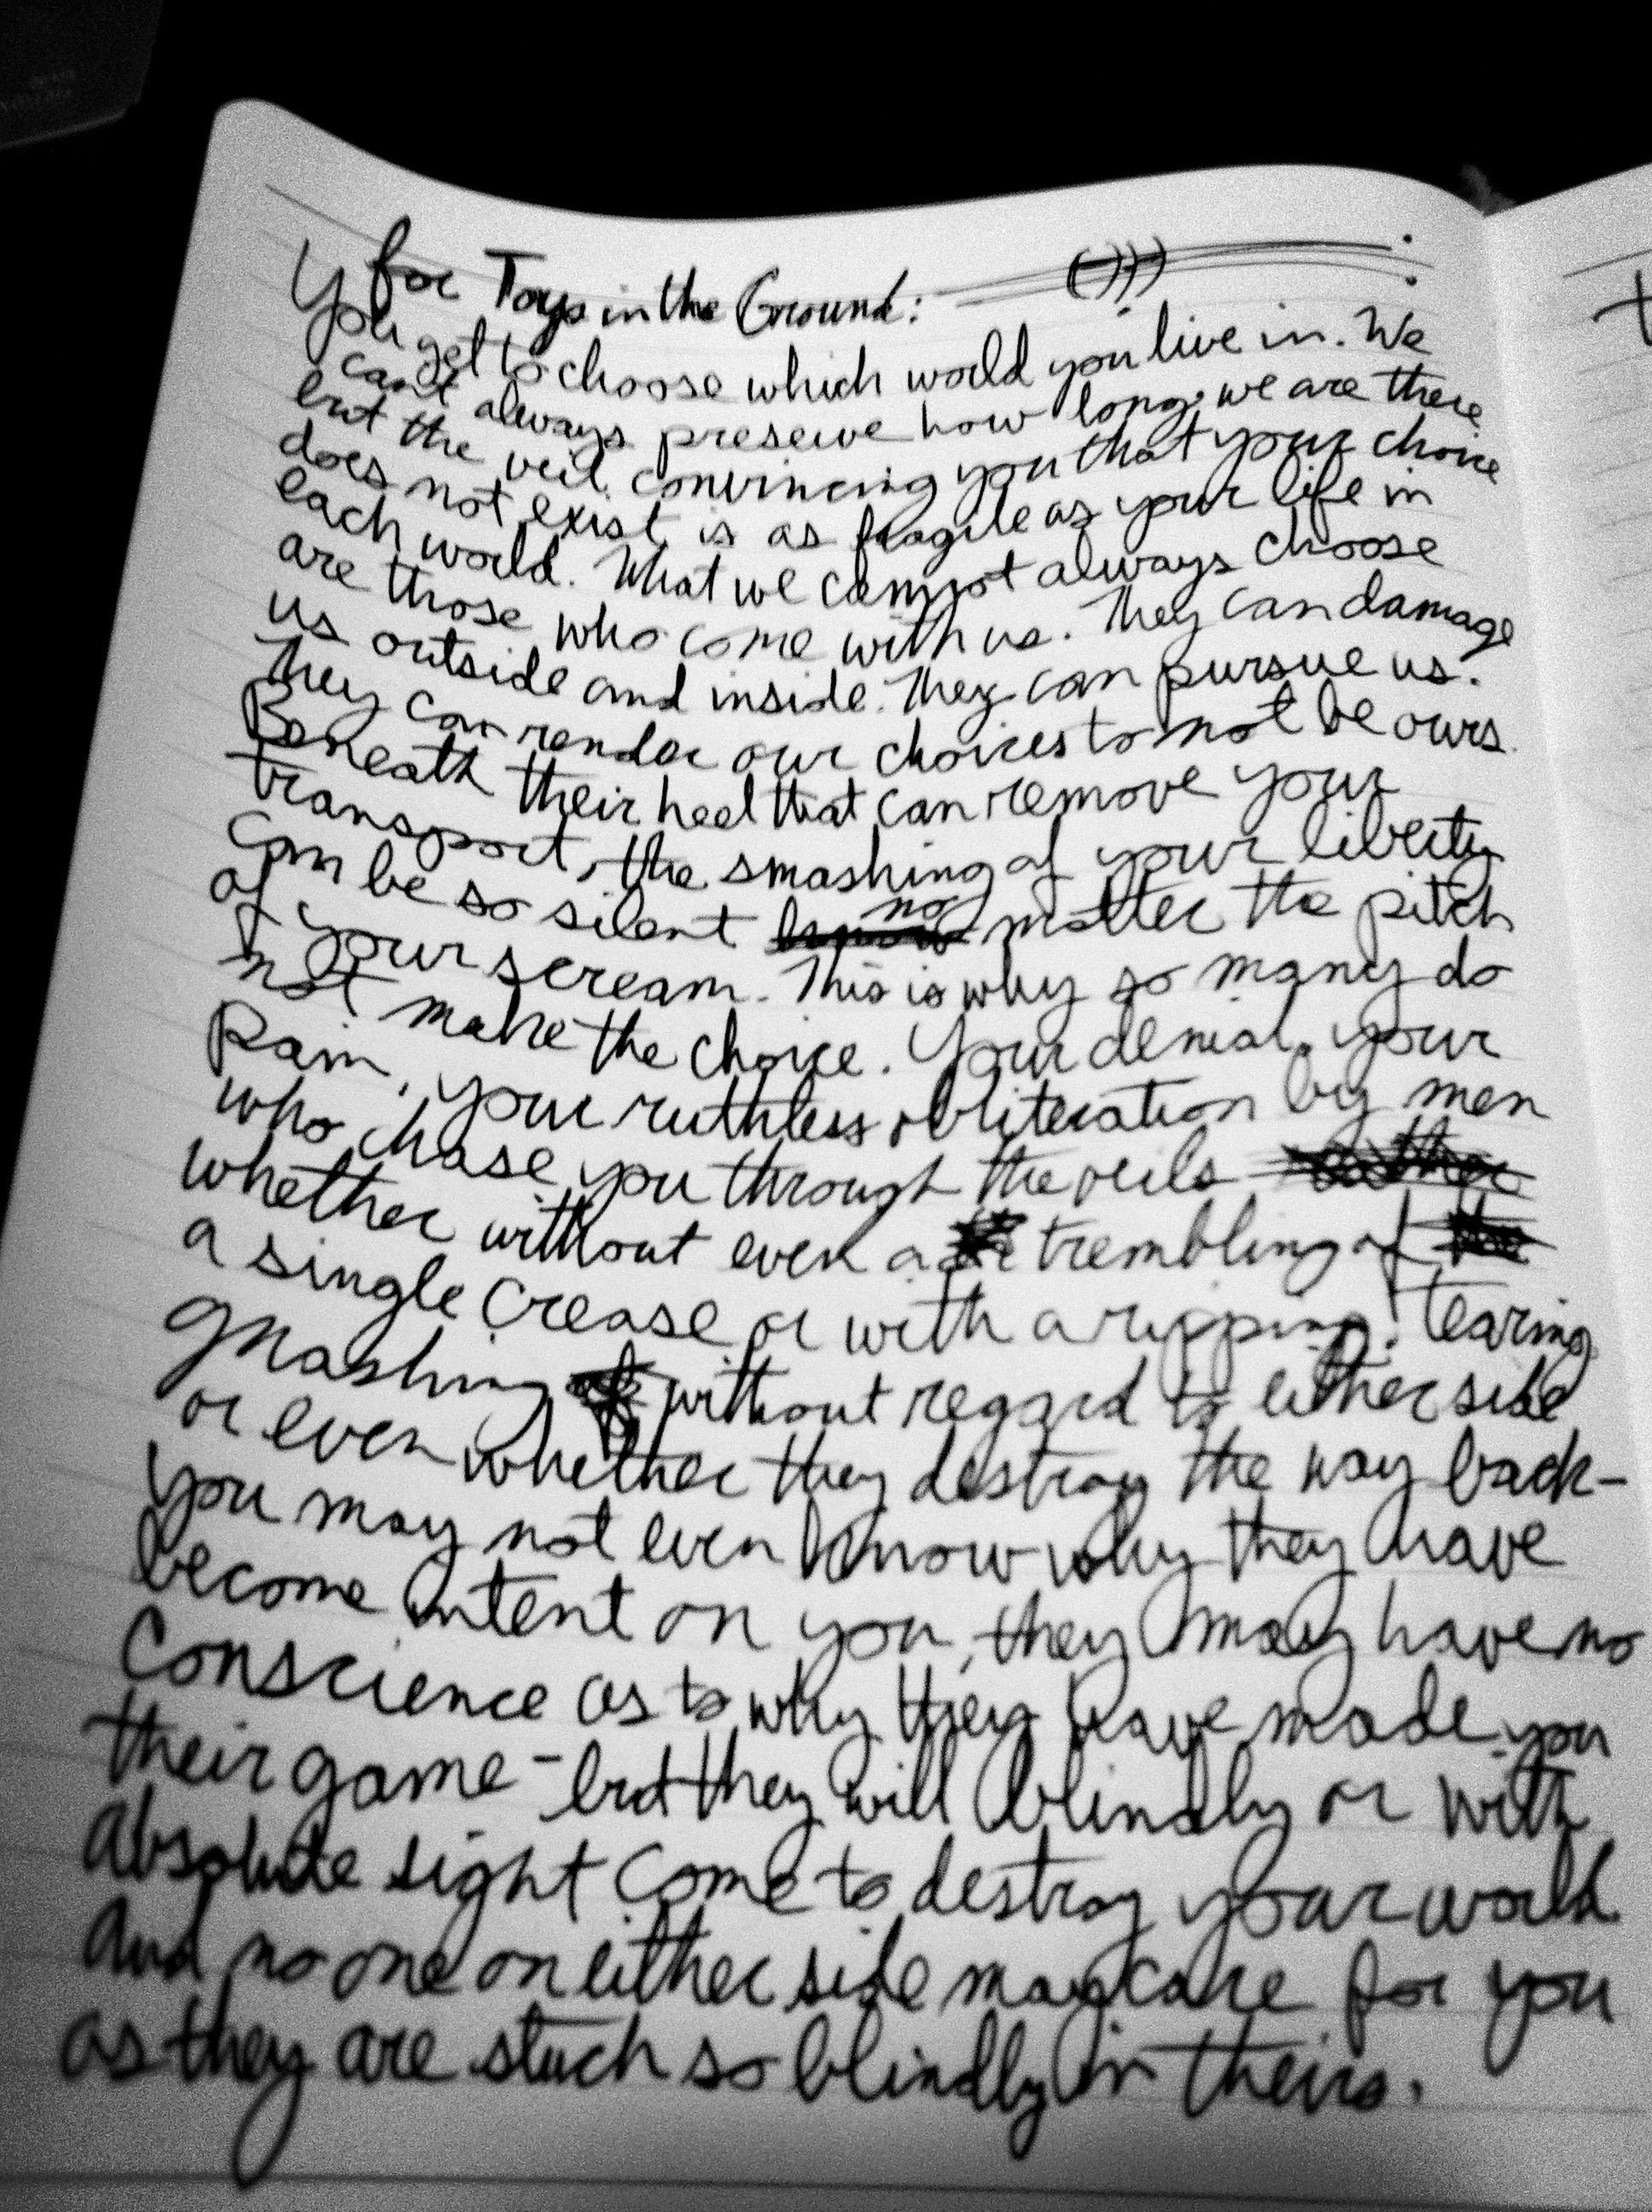 for Toys in the Ground:
You get to choose which world you live in. We
can't always preserve how long we are there
but the veil convincing you that your choice
does not exist is as fragile as your life in
each world. What we cannot always choose
are those who come with us. They can damage
us outside and inside. They can pursue us.
They can render our choices to not be ours.
Beneath their heel that can remove your
transport, the smashing of your liberty
can be so silent no matter the pitch
of your scream. This is why so many do
not make the choice. Your denial, your
pain, your ruthless obliteration by men
who chase you through the veils
whether without even a trembling of
a single crease or with a ripping, tearing
gnashing without regard to either side
or even whether they destroy the way back-
you may not even know why they have
become intent on you, they may have no
conscience as to why they have made you
their game - but they will blindly or with
absolute sight come to destroy your world
And no one on either side may care for you
as they are stuck so blindly in theirs.